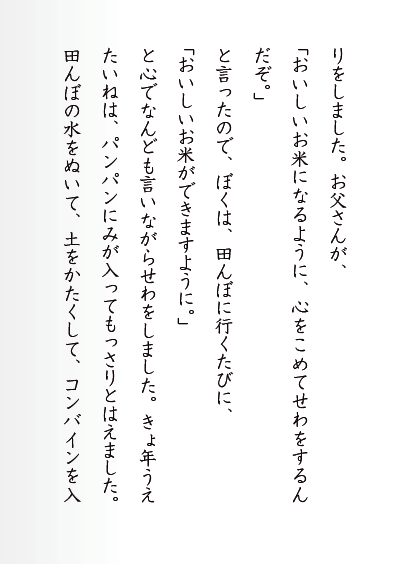 りをしました。お父さんが、
「おいしいお米になるように、心をこめてせわをするん
だぞ。」
と言ったので、ぼくは、田んぼに行くたびに、
「おいしいお米ができますように。」
と心でなんども言いながらせわをしました。きょ年うえ
たいねは、パンパンにみが入ってもっさりとはえました。
田んぼの水をぬいて、土をかたくして、コンバインを入